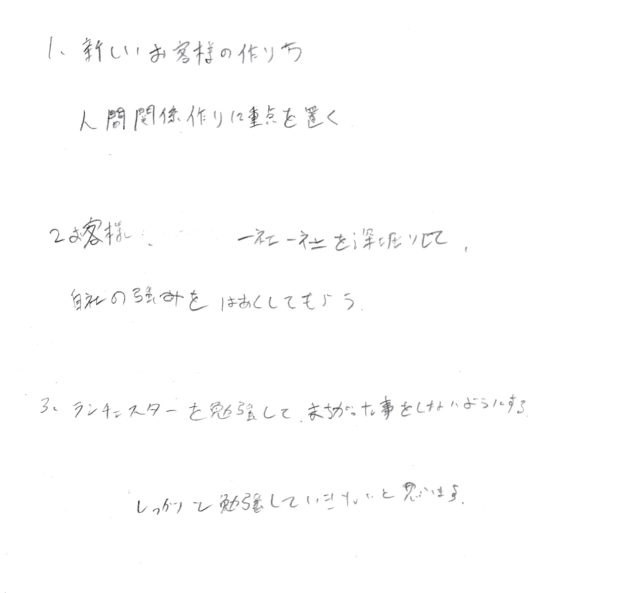 1、新しいお客様の作り方
人間関係作りに重点を置く
2 お客様 一社一社を深堀りして、
自社の強みをはあくしてもらう。
3、ランチェスターを勉強して、まちがった事をしないようにする
しっかりと勉強していきたいと思います。